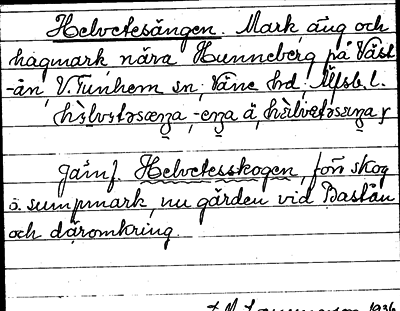 Helvetesängen. Mark, äng och
hagmark nära Hunneberg på Väst-
-ån, V. Tunhem sn, Väne hd, Älfsb. l.
Jämf. Helvetesskogen, förr skog
o. sumpmark, nu gården vid Bastån
och däromkring.
1936